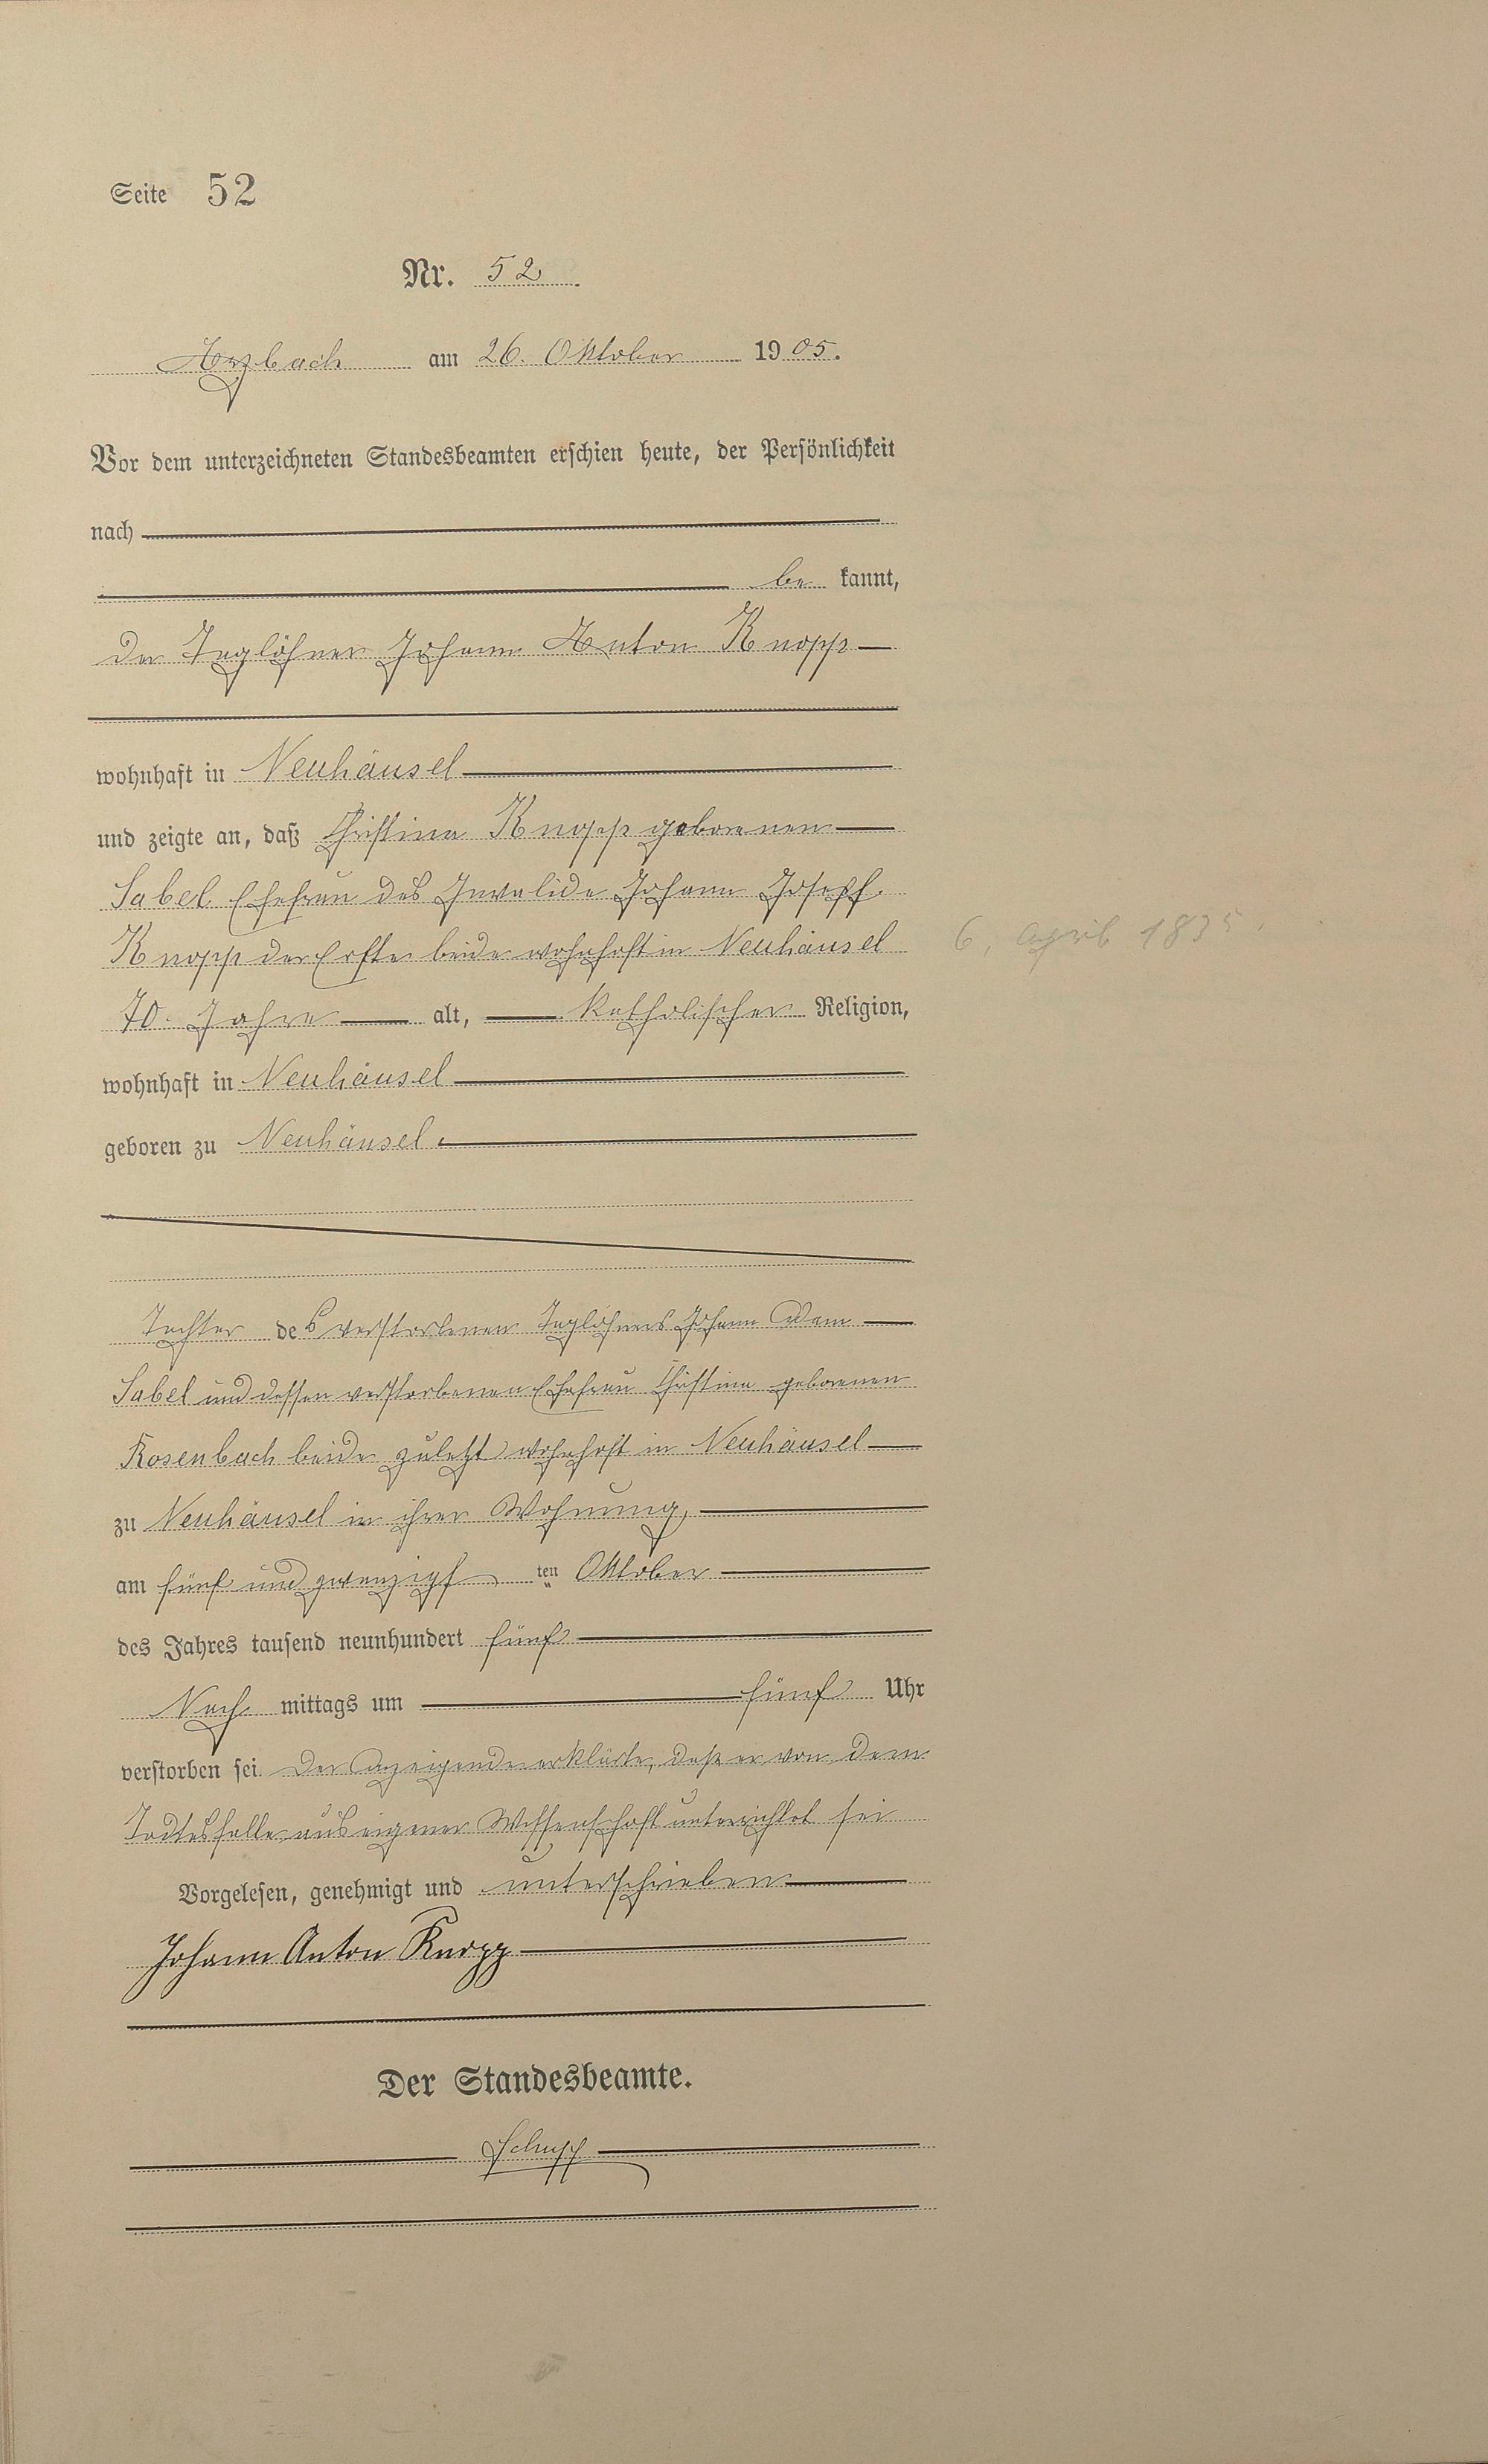 Seite 52
Nr. 52.
Arzbach am 26. Oktober 1905.
Vor dem unterzeichneten Standesbeamten erschien heute, der Persönlichkeit
nach
be kannt,
der Taglöhner Johann Anton Knopp
wohnhaft in Neuhäusel
und zeigte an, daß Christina Knopp geborenen
Sabel Ehefrau des Invalide Johann Joseph
Knopp der Erste beide wohnhaft in Neuhäusel
6. April 1835.
70 Jahre alt, katholischer Religion,
wohnhaft in Neuhäusel
geboren zu Neuhäusel.
Tochter des verstorbenen Taglöhners Johann Adam
Sabel und dessen verstorbenen Ehefrau Christina geborenen
Rosenbach beide zuletzt wohnhaft in Neuhäusel
zu Neuhäusel in ihrer Wohnung,
am fünf und zwanzigs ten Oktober
des Jahres tausend neunhundert fünf
Nach mittags um fünf Uhr
verstorben sei. Der Anzeigende erklärte, daß er von dem
Todtesfalle aus eigener Wissenschaft unterrichtet sei
Vorgelesen, genehmigt und unterschrieben
Johann Anton Knopp
Der Standesbeamte.
Schupp